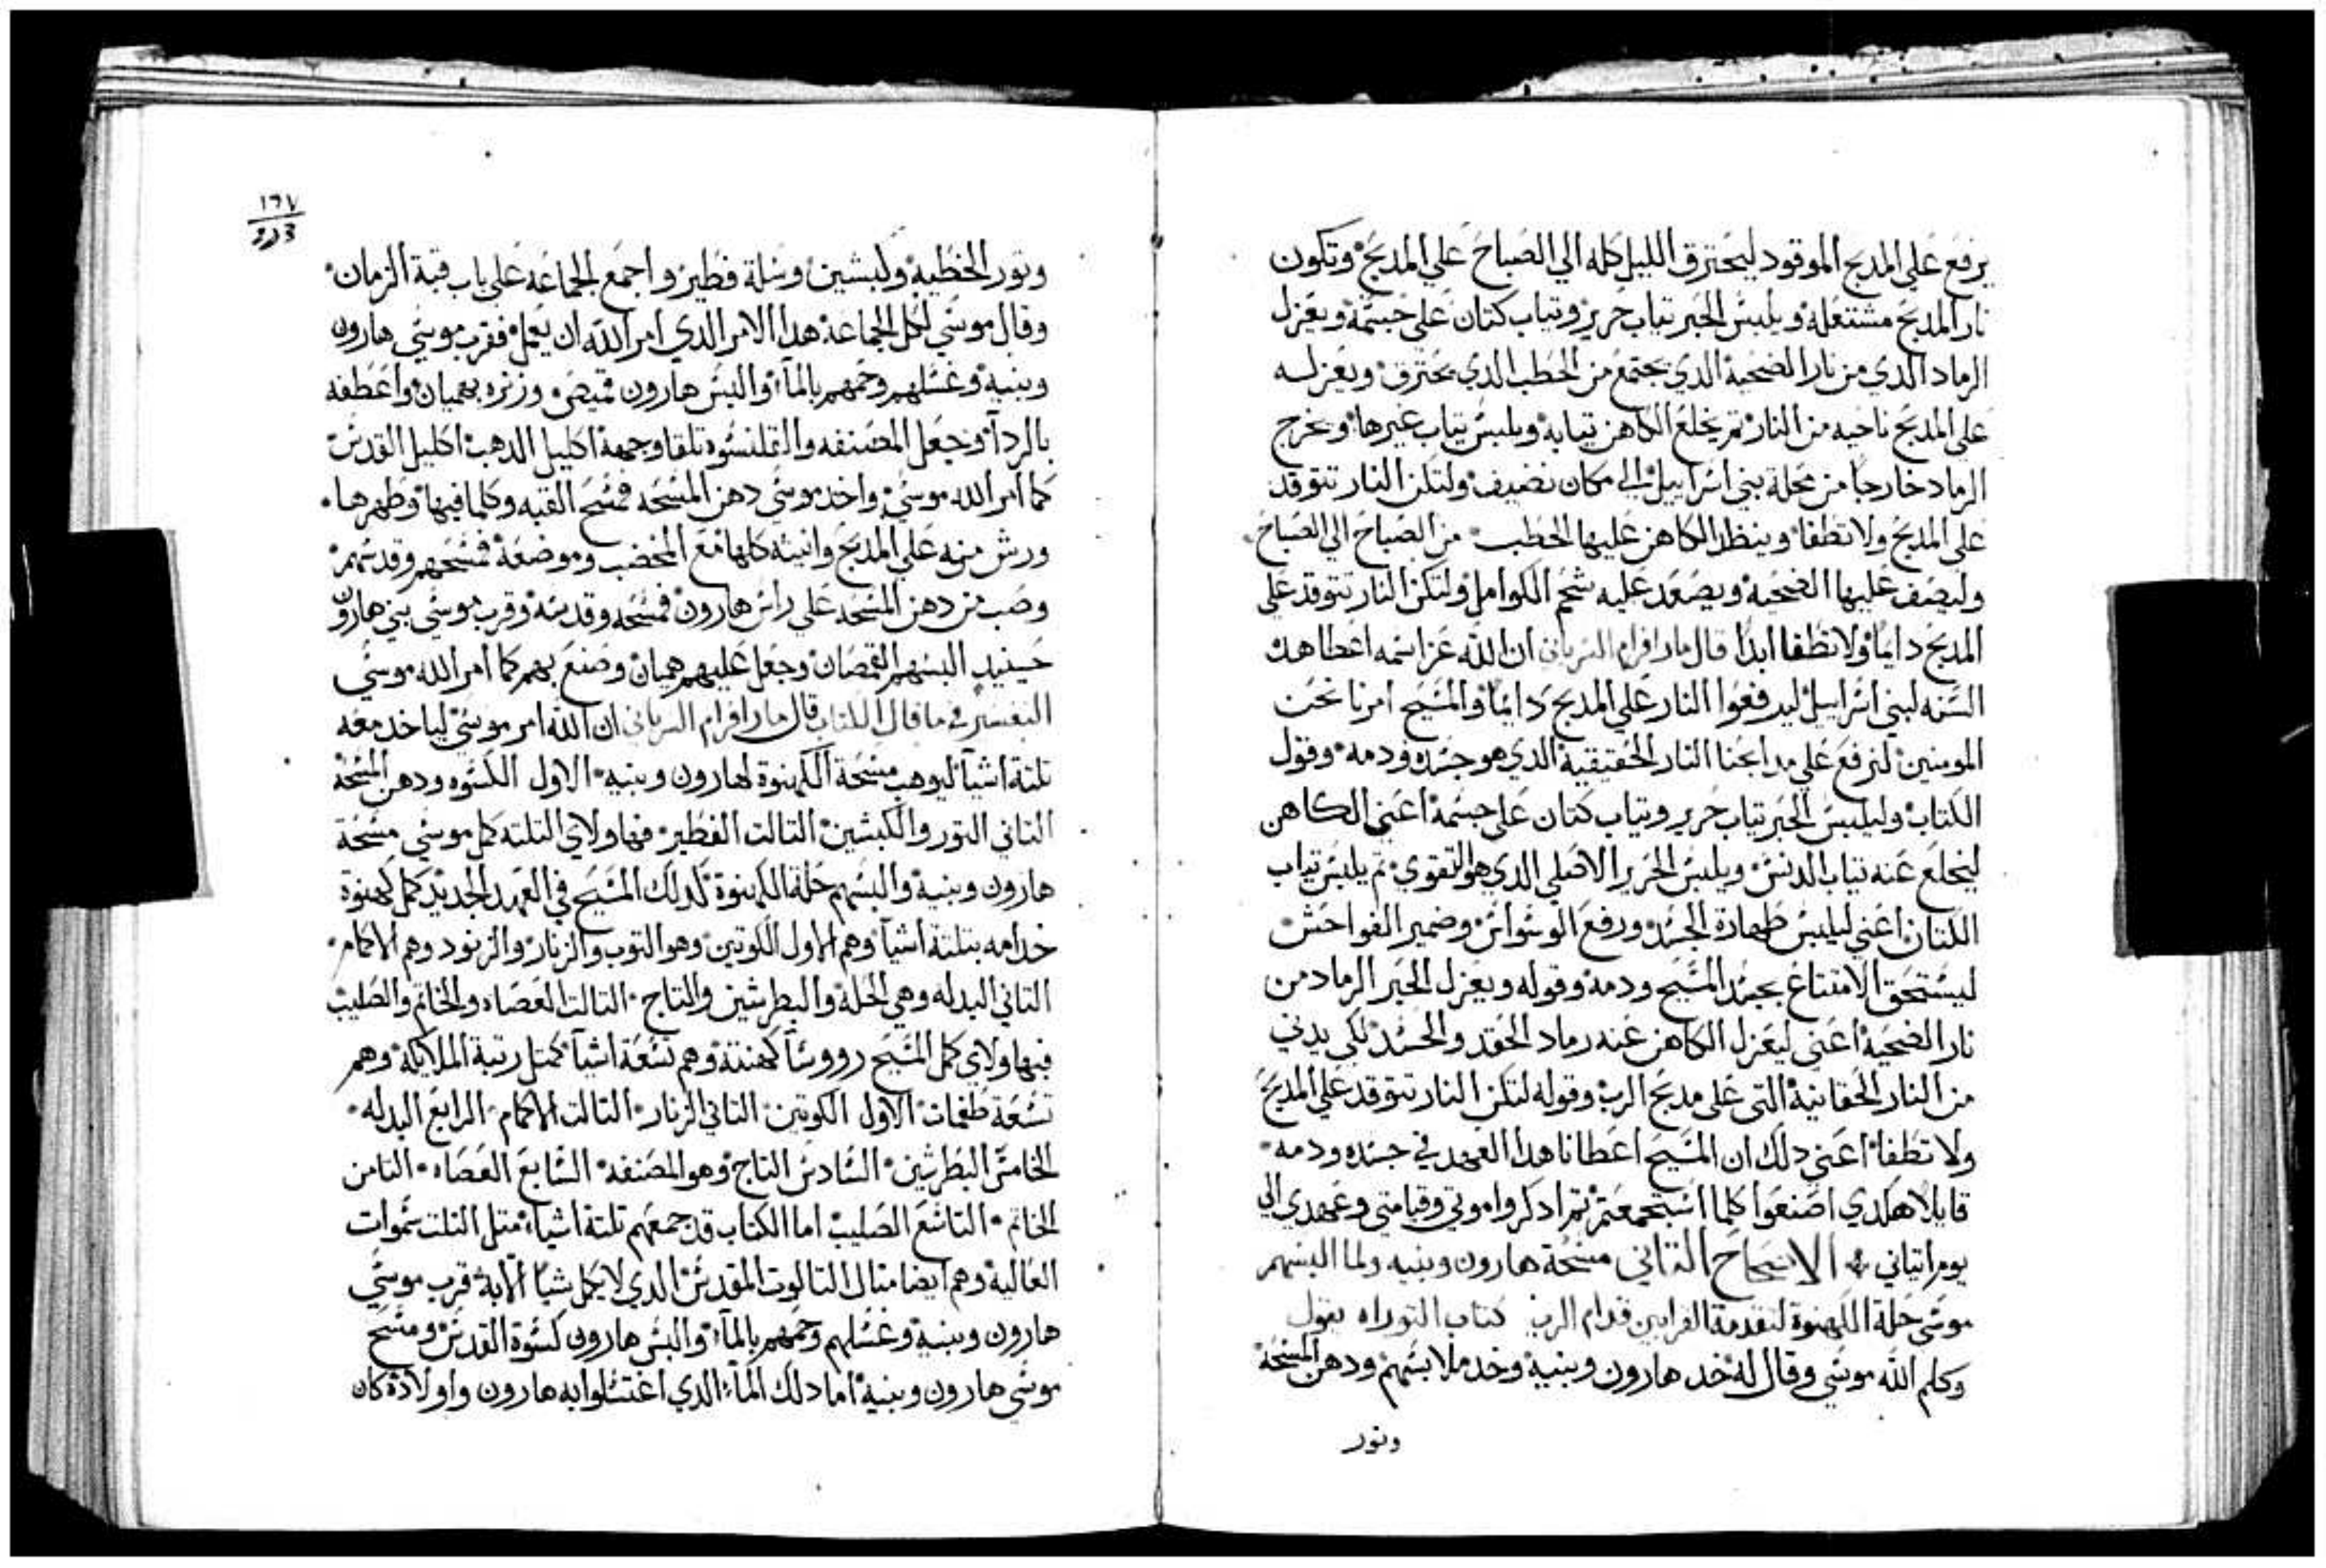 يرفع علي المدبح الموقود ليحترق الليل كله الي الصباح علي المدبح وتكون
نار المدبح مشتعله ويلبس الحبر تياب حرير وتياب كتان علي جسمه ويعزل
الرماد الدي من نار الضحية الدي يجتمع من الحطب الدي يحترق ويعزله
علي المدبح ناحيه من النار تم يخلع الكاهن تيابه ويلبس تياب غيرها ويخرج
الرماد خارجا من محلة بني اسراييل الي مكان نضيف ولتكن النار تتوقد
علي المدبح ولا تطفا وينظد الكاهن عليها الحطب من الصباح الي الصباح
وليصف عليها الضحية ويصعد عليه شحم الكوامل ولتكن النار تتوقد علي
المدبح دايما ولا تطفا ابدا قال مار افرام السرياني ان الله عز اسمه اعطا هده
السنه لبني اسراييل ليرفعوا النار علي المدبح دايما والمسيح امرنا نحن
المومنين لنرفع علي مدابحنا النار الحقيقية الدي هو جسده ودمه وقول
الكتاب وليلبس الحبر تياب حرير وتياب كتان علي جسمه اعني الكاهن
ليخلع عنه تياب الدنس ويلبس الحرير الاصلي الدي هو التقوي تم يلبس تياب
الكتان اعني ليلبس طهارة الجسد ورفع الوسواس وضمير الفواحش
ليستحق الامتناع بجسد المسيح ودمه وقوله ويعزل الحبر الرماد من
نار الضحية اعني ليعزل الكاهن عنه رماد الحقد والحسد لكي يدني
من النار الحقانية التي علي مدبح الرب وقوله لتكن النار تتوقد علي المدبح
ولا تطفا اعني دلك ان المسيح اعطانا هدا العهد في جسده ودمه
قايلا هكدي اصنعوا كلما استجمعتم تم ادكروا موتي وقيامتي وعهدي الي
يوم اتياني الاصحاح التاني مسحة هارون وبنيه ولما البسهم
موسي حلة الكهنوة لتقدمة القرابين قدام الرب كتاب التوراه يقول
وكلم الله موسي وقال له خد هارون وبنيه وخد ملابسهم ودهن المسحة
وتور
١٦٧
وتور الخطيه وكبشين وسلة فطير واجمع الجماعه علي باب قبة الزمان
وقال موسي لكل الجماعة هدا الامر الدي امر الله ان يعمل فقرب موسي هارون
وبنيه وغسلهم وحمهم بالمآء والبس هارون قميص وزنره بهميان واعطفه
بالردآ وجعل المصنفه والقلنسوه تلقا وجهه اكليل الدهب اكليل القدس
كما امر الله موسي واخد موسي دهن المسحه فمسح القبه وكلما فيها وطهرها
ورش منه علي المدبح وانيته كلها مع المخضب وموضعة فمسحهم وقدسهم
وصب من دهن المسحه علي راس هارون فمسحه وقدسه وقرب موسي بني هارون
حينيد البسهم القمصان وجعل عليهم هميان وصنع بهم كما امر الله موسي
التفسير في ما قال الكتاب قال مار افرام السرياني ان الله امر موسي لياخد معه
تلتة اشيآ ليوهب مسحة الكهنوة لهارون وبنيه الاول الكسوه ودهن المسحة
التاني التور والكبشين التالت الفطير فبهاولاي التلته كمل موسي مسحة
هارون وبنيه والبسهم حلة الكهنوة كدلك المسيح في العهد الجديد كمل كهنوة
خدامه بتلتة اشيآ وهم الاول الكوتين وهو التوب والزنار والزنود وهم الاكمام
التاني البدله وهي الحلة والبطرشين والتاج التالت العصاه والخاتم والصليب
فبهاولاي كمل المسيح رووسآ كهنته وهم تسعة اشيآ كمتل رتبة الملايكة وهم
تسعة طغمات الاول الكوتين التاني الزنار التالت الاكمام الرابع البدله
الخامس البطرشين السادس التاج وهو المصنفه السابع العصاه التامن
الخاتم التاسع الصليب اما الكتاب قد جمعهم تلتة اشياء متل التلت سموات
العالية وهم ايضا متال التالوت المقدس الدي لا يكمل شيا الا به قرب موسي
هارون وبنيه وغسلهم وحمهم بالمآء والبس هارون كسوة القدس ومسح
موسي هارون وبنيه اما دلك المآء الدي اغتسلوا به هارون واولاده كان